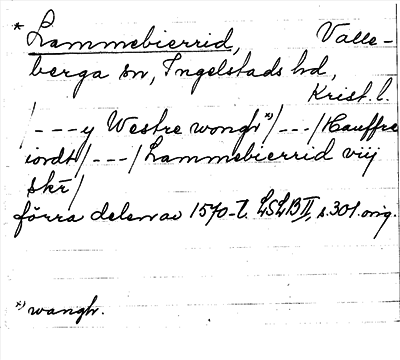 * Lammebierrid, Valle-
berga sn, Ingelstads hd,
Krist. l.
/---y Westre wongh *)/---/Hauffre
iordt/---/Lammebierrid viij
skr̄/
förra delen av 1570-t. LSLB II, s. 301. orig.
*) wangh.